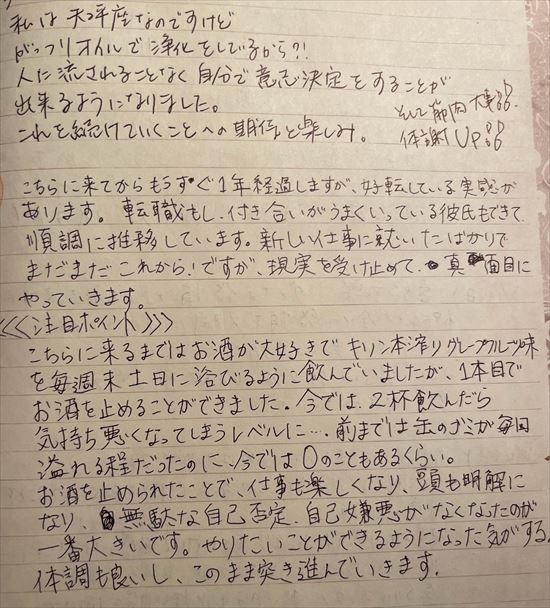 私は天秤座なのですけど
がっつりオイルで浄化をしているから?!
人に流されることなく自分で意志決定をすることが
出来るようになりました。
これを続けていくことへの期待と楽しみ。
そして筋肉大事
体謝UP
こちらに来てからもうすぐ1年経過しますが、好転している実感が
あります。転職もし、付き合いがうまくいっている彼氏もできて、
順調に推移しています。新しい仕事に就いたばかりで
まだまだこれから!ですが、現実を受け止めて、真面目に
やっていきます。
<<<注目ポイント>>>
こちらに来るまではお酒が大好きでキリン本滓りグレープフルーツ味
を毎週末土日に浴びるように飲んでいましたが、1本目で
お酒を止めることができました。今では、2杯飲んだら
気持ち悪くなってしまうレベルに… 前までは缶のゴミが毎回
溢れる程だったのに、今では0のこともあるくらい。
お酒を止められたことで、仕事も楽しくなり、頭も明解に
なり、無駄な自己否定、自己嫌悪がなくなったのが
一番大きいです。やりたいことができるようになった気がする。
体調も良いし、このまま突き進んでいきます。